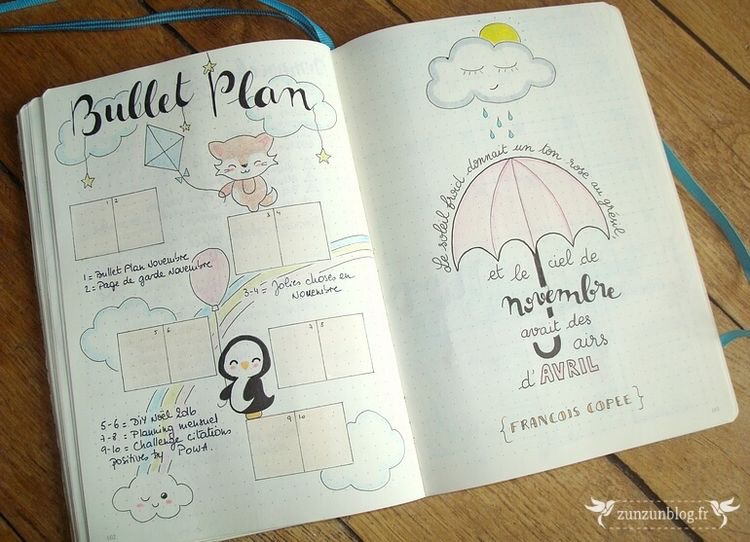 Bullet Plan
1 2
3 4
1 = Bullet Plan Novembre
2 = Page de garde Novembre
3-4 = Jolies choses en
Novembre
5 6
7 8
5-6 = DiY Noël 2016
7-8 = Planning mensuel
9-10 = Challenge citations
positives by POWA.
9 10
102
Le soleil froid donnait un ton rose au grésil,
et le ciel de
novembre
avait des
airs
d'AVRIL
{FRANCOIS COPEE}
103
zunzunblog.fr